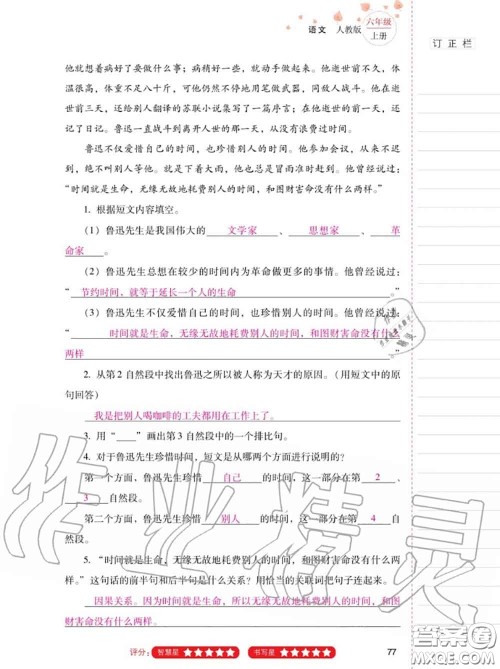 语文 人教版 六年级 上册
订正栏
他就想着病好了要做什么事；病稍好一些，就动手做起来。他在逝世前不久，体
温很高，体重不足八十斤，可他仍然不停地用笔做武器，同敌人战斗。他在逝
世前三天，还给别人翻译的苏联小说集写了一篇序言；在逝世的前一天，还
记了日记。鲁迅一直战斗到离开人世的那一天，从没有浪费过时间。
鲁迅不仅爱惜自己的时间，也珍惜别人的时间。他参加会议，从来不迟
到，绝不叫别人等他。就是下着大雨，他也总是冒雨准时赶到。他曾经说过：
“时间就是生命，无缘无故地耗费别人的时间，和图财害命没有什么两样。”
1. 根据短文内容填空。
（1）鲁迅先生是我国伟大的 文学家 、 思想家 、 革
命家 。
（2）鲁迅先生总想在较少的时间内为革命做更多的事情。他曾经说过：
“ 节约时间，就等于延长一个人的生命 ”
（3）鲁迅先生不仅爱惜自己的时间，也珍惜别人的时间。他曾经说过：
“ 时间就是生命，无缘无故地耗费别人的时间，和图财害命没有什么
两样 ”
2. 从第2自然段中找出鲁迅之所以被人称为天才的原因。（用短文中的原
句回答）
我是把别人喝咖啡的工夫都用在工作上了。
3. 用“____”画出第3自然段中的一个排比句。
4. 对于鲁迅先生珍惜时间，短文是从哪两个方面进行说明的？
第一个方面，鲁迅先生珍惜 自己 的时间，这一部分在第 2 、
3 自然段。
第二个方面，鲁迅先生珍惜 别人 的时间，这一部分在第 4 自
然段。
5. “时间就是生命，无缘无故地耗费别人的时间，和图财害命没有什么两
样。”这句话的前半句和后半句是什么关系？用恰当的关联词把句子连起来。
因果关系。因为时间就是生命，所以无缘无故地耗费别人的时间，和图
财害命没有什么两样。
评分： 智慧星 ★★★★★ 书写星 ★★★★★
77
作业精灵
答案圈
MXQE.COM